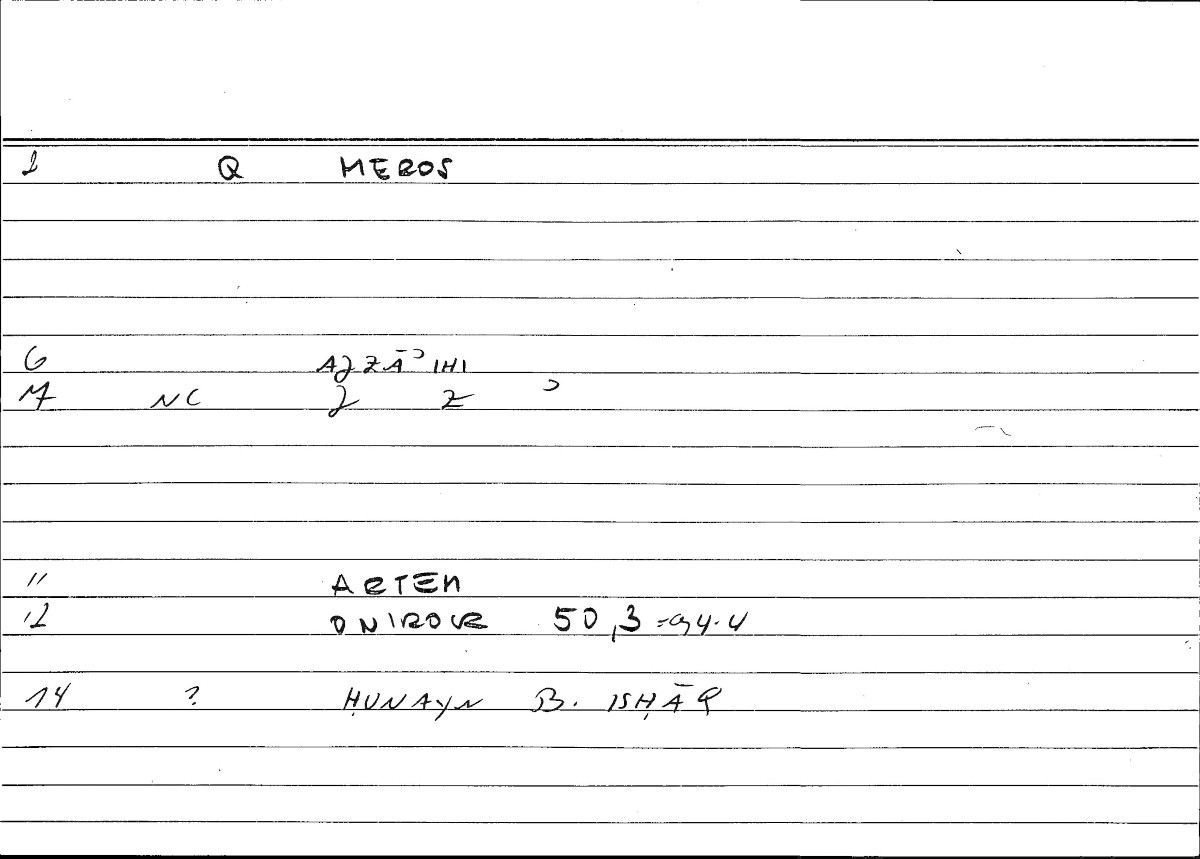 2 Q MEROS
6 AJZĀʾIHI
7 NC J Z ʾ
11 ARTEM
12 ONIROCR 50,3
14 ? ḤUNAYN B. ISḤĀQ